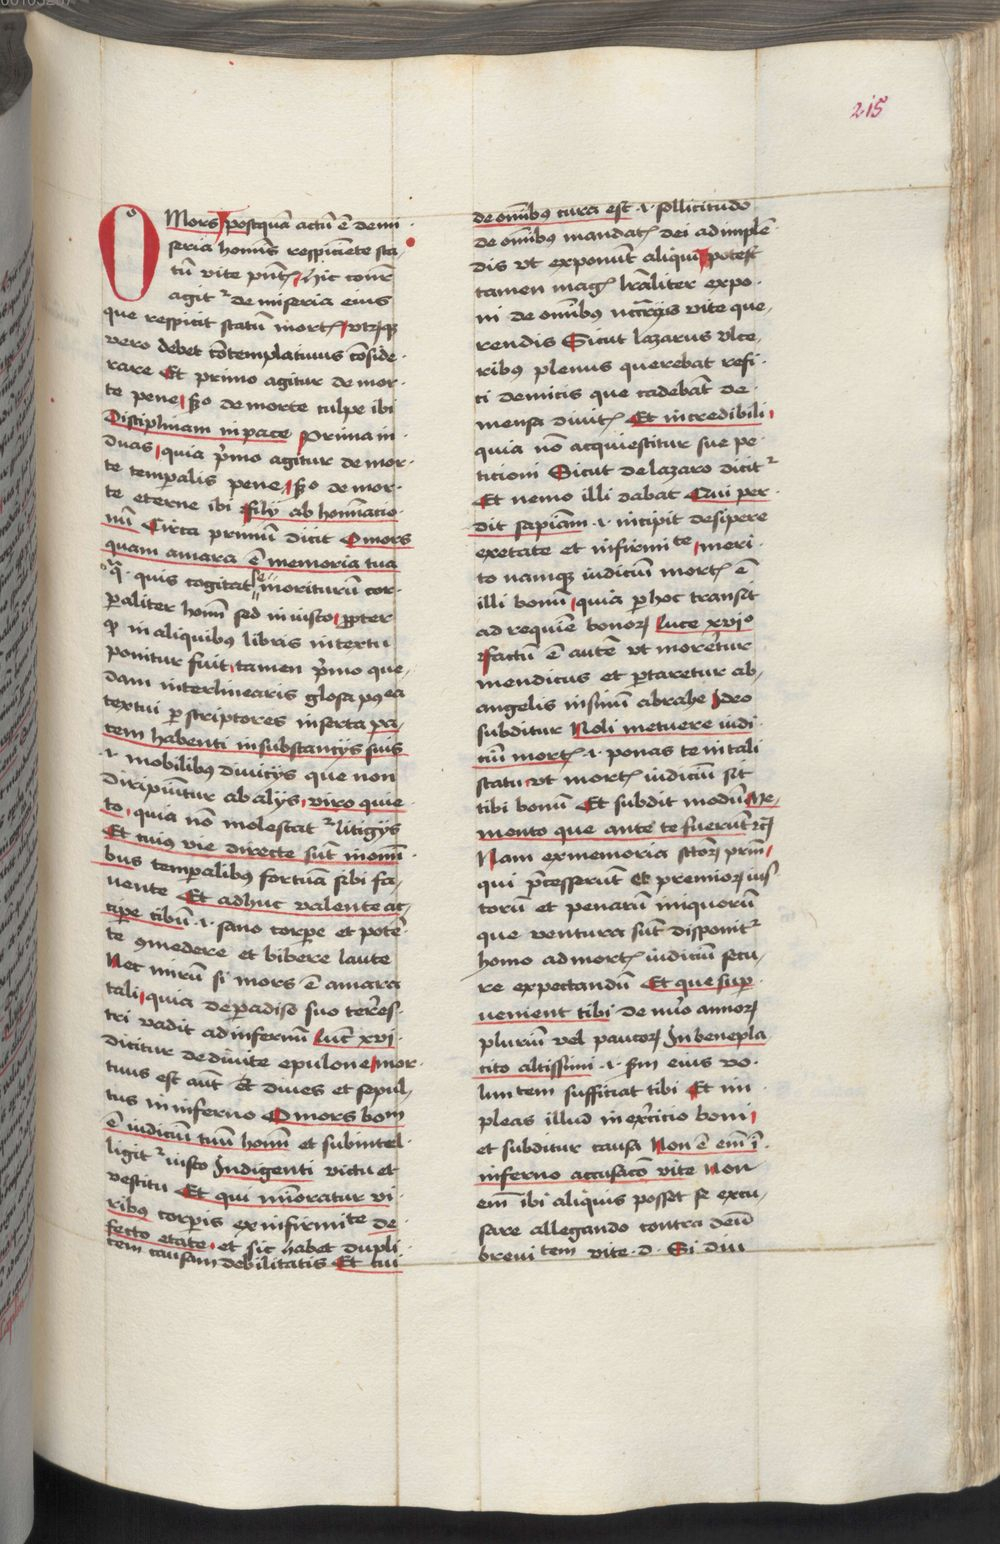 215
O Mors postquā actū ē de mi
seria hominis respiciente sta
tū vite pn̄tis hic conn̄r
agit᷑ de miseria eius
que respicit statū mortis vtrūqꝫ
vero debet cōtemplatiuus cōside
rare Et primo agitur de mor
te pene sc̄do de morte culpe ibi
Disciplinam in pace Prima in
duas quia p̄mo agitur de mor
te temporalis pene sc̄do de mor
te eterne ibi filij ab hominacio
nū Circa primum dicit O mors
quam amara ē memoria tua
qͣ quis cogitat se moriturū cor
poraliter homī sed iniusto propter
qd in aliquibus libris in textu
ponitur fuit tamen p̄mo que
dam interlinearis glosa postea
textui per scriptores inserta pa
cem habenti in substantijs suis
.i. mobilibus diuitijs que non
diripiuntur ab alijs viro quie
to quia nō molestat᷑ litigijs
Et cuius vie directe sūt in omī
bus temporalibus fortuna sibi fa
uente Et adhuc valente ac
cipere cibū .i. sano corpore et poten
te comedere et bibere laute
Nec mirū si mors ē amara
tali quia de paradiso suo terres
tri vadit ad infernū Luc̄ xvi
dicitur de diuite epulone mor
tuus est aūt et diues et sepul
tus in inferno O mors bonū
ē iudiciū tuū homī et subintel
ligit᷑ iusto Indigenti victu et
vestitu Et qui minoratur vi
ribus corporis ex infirmitate de
fecto etate et sic habet dupli
cem causam debilitatis Et cui
de omībus cura est .i. sollicitudo
de omībus mandatis dei adimplen
dis vt exponūt aliqui potest
tamen magis lrāliter expo
ni de omībus nc̄c̄rijs vite que
rendis Sicut lazarus vlce
ribus plenus querebat refi
ci de micis que cadebāt de
mensa diuitis Et incredibili
quia nō acquiescitur sue pe
ticioni Sicut de lazaro dicit᷑
Et nemo illi dabat Qui per
dit sapiam .i. incipit desipere
ex etate et infirmitate meri
to namqꝫ iudiciū mortis ē
illi bonū quia per hoc transit
ad requiē bonorū Luce xvi°
factū ē autē vt moreretur
mendicus et portaretur ab
angelis in sinū abrahe Ideo
subditur Noli metuere iudi
ciū mortis .i. ponas te in tali
statu vt mortis iudiciū sit
tibi bonū Et subdit modū Me
mento que ante te fuerūt etc̄
Nam ex memoria sctorū prim
qui p̄cesserūt et premiorū ius
torū et penarū iniquorū
que ventura sūt disponit᷑
homo ad mortis iudiciū secu
re expectandū Et que super
uenient tibi de nu̾o annorū
pluriū vel paucorū In benepla
cito altissimi .i. sm̄ eius vo
luntatem sufficiat tibi Et im
pleas illud in exercicio boni
et subditur causa Non ē eī ī
inferno accusacō vite Non
enī ibi aliquis posset se excu
sare allegando contra deū
breuitatem vite .d. Si diu